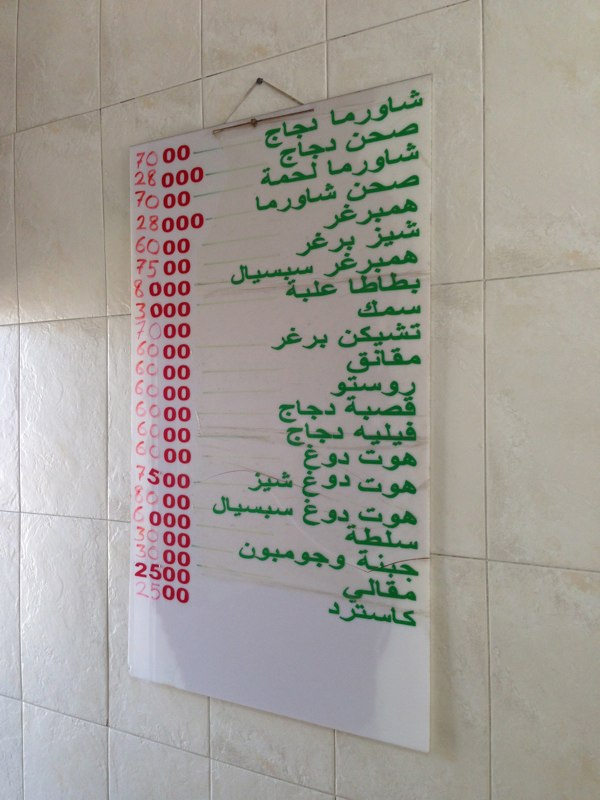 شاورما دجاج 7000
صحن دجاج 28000
شاورما لحمة 7000
صحن شاورما 28000
همبرغر 6000
شيز برغر 7500
همبرغر سبسيال 8000
بطاطا علبة 3000
سمك 7000
تشيكن برغر 6000
مقانق 6000
روستو 6000
قصبة دجاج 6000
فيليه دجاج 6000
هوت دوغ 6000
هوت دوغ شيز 7500
هوت دوغ سبسيال 8000
سلطة 6000
جبنة وجومبون 3000
مقالي 3000
كاسترد 2500
2500